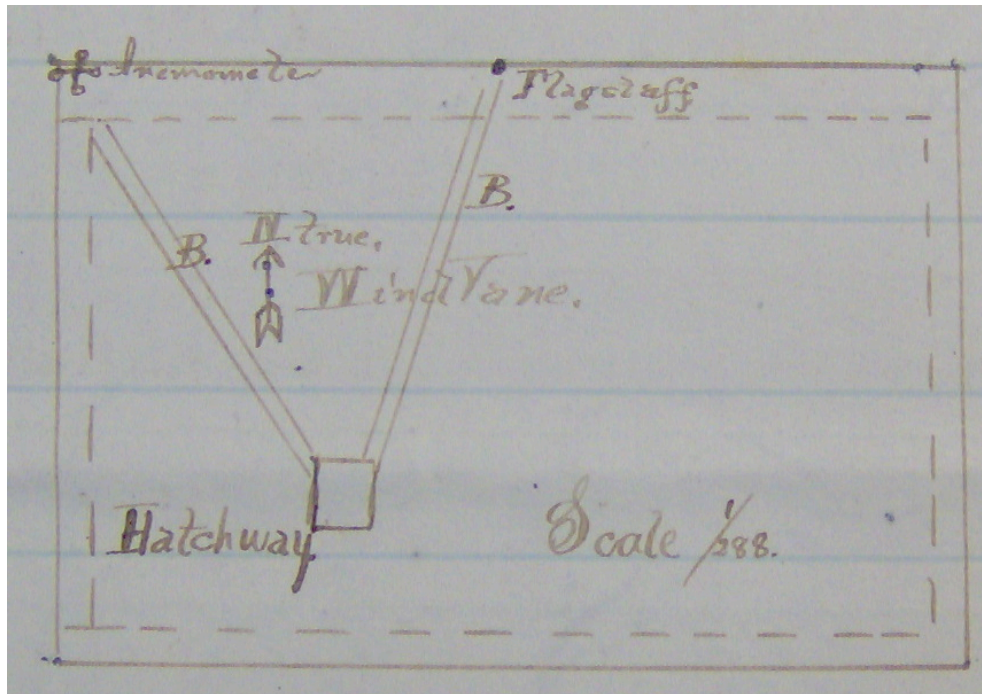 Anemometer
Flagstaff
B.
B.
N true.
Wind Vane.
Hatchway
Scale 1/288.